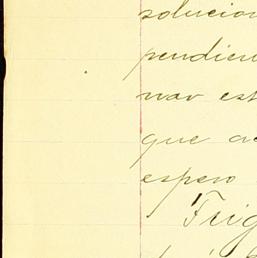 solucion
pendien
nar est
que ac
espero
Trig